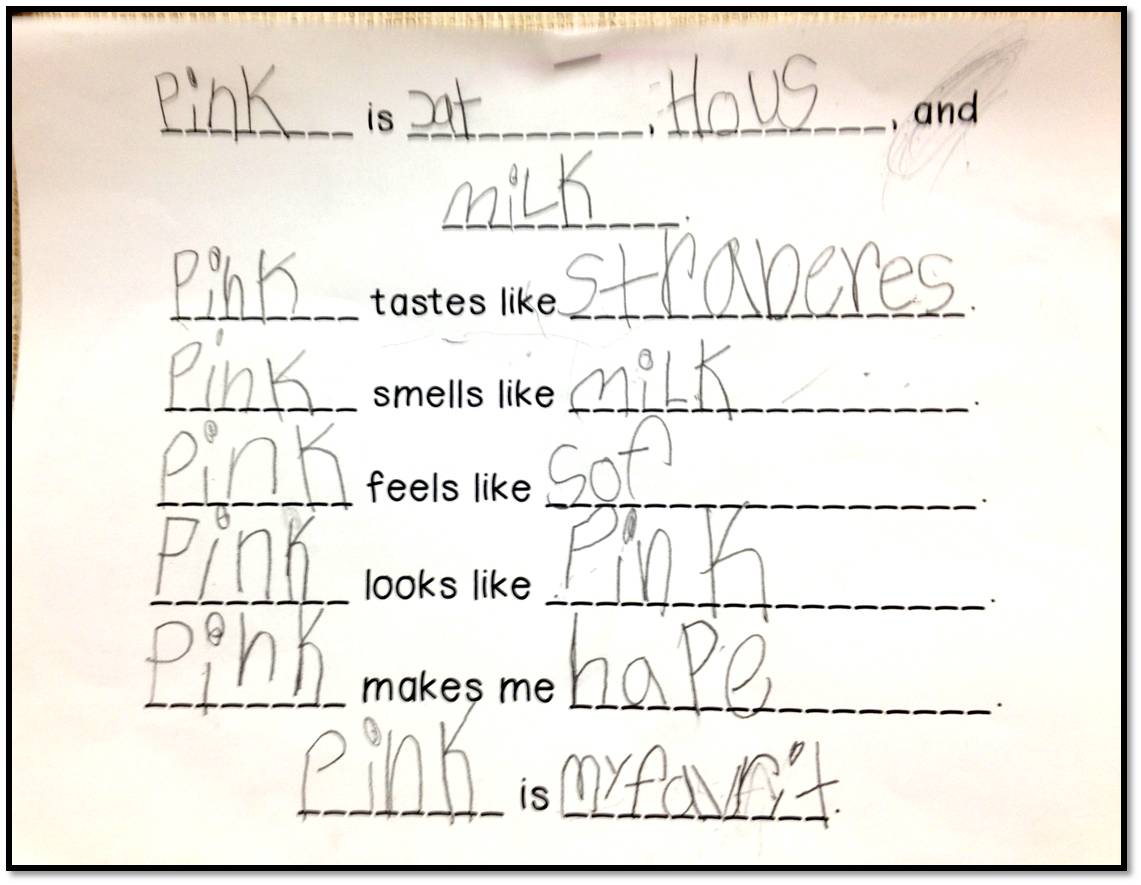 Pink is , Hous, and
milk.
Pink tastes like straberes.
Pink smells like milk.
Pink feels like sof.
Pink looks like Pink.
Pink makes me hape.
Pink is my favrit.